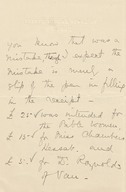 you know that was a
mistake, & I expect the
mistake is merely a
slip of the pen in filling
in the receipt —
£ 25 was intended for
the Public Women,
£ 15 for Miss Chambers
Heseab. and
£ 5 for Dr. Raynolds
of Van —